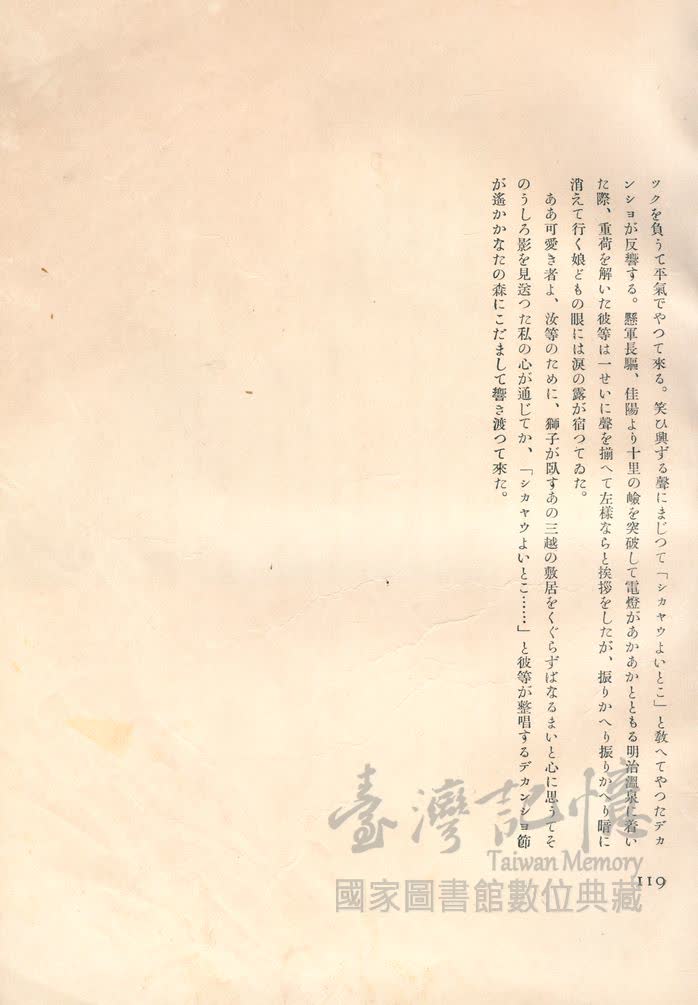 ツクを負うて平氣でやつて來る。笑ひ興ずる聲にまじつて「シカヤウよいとこ」と敎へてやつたデカ
ンショが反響する。懸軍長驅、佳陽より十里の嶮を突破して電燈があかあかとともる明治溫泉に着い
た際、重荷を解いた彼等は一せいに聲を揃へて左樣ならと挨拶をしたが、振りかへり振りかへり暗に
消えて行く娘どもの眼には淚の露が宿つてゐた。
ああ可愛き者よ、汝等のために、獅子が臥すあの三越の敷居をくぐらずばなるまいと心に思うてそ
のうしろ影を見送つた私の心が通じてか、「シカヤウよいとこ……」と彼等が整唱するデカンショ節
が遙かかなたの森にこだまして響き渡つて來た。
臺灣記憶
Taiwan Memory
國家圖書館數位典藏
119